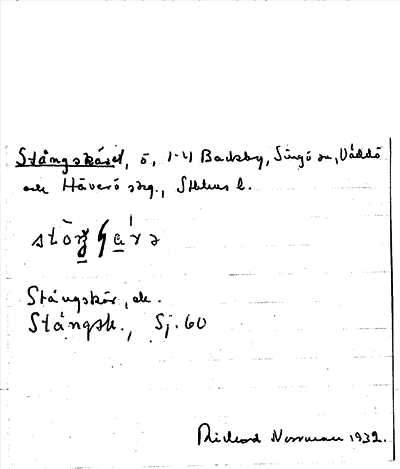 Stångskäret, ö, 1-4 Backby, Singö sn, Väddö
och Häverö skg., Sthlms l.
Stångskär, ek.
Stångsk., Sj. 60
Rickard Norrman 1932.